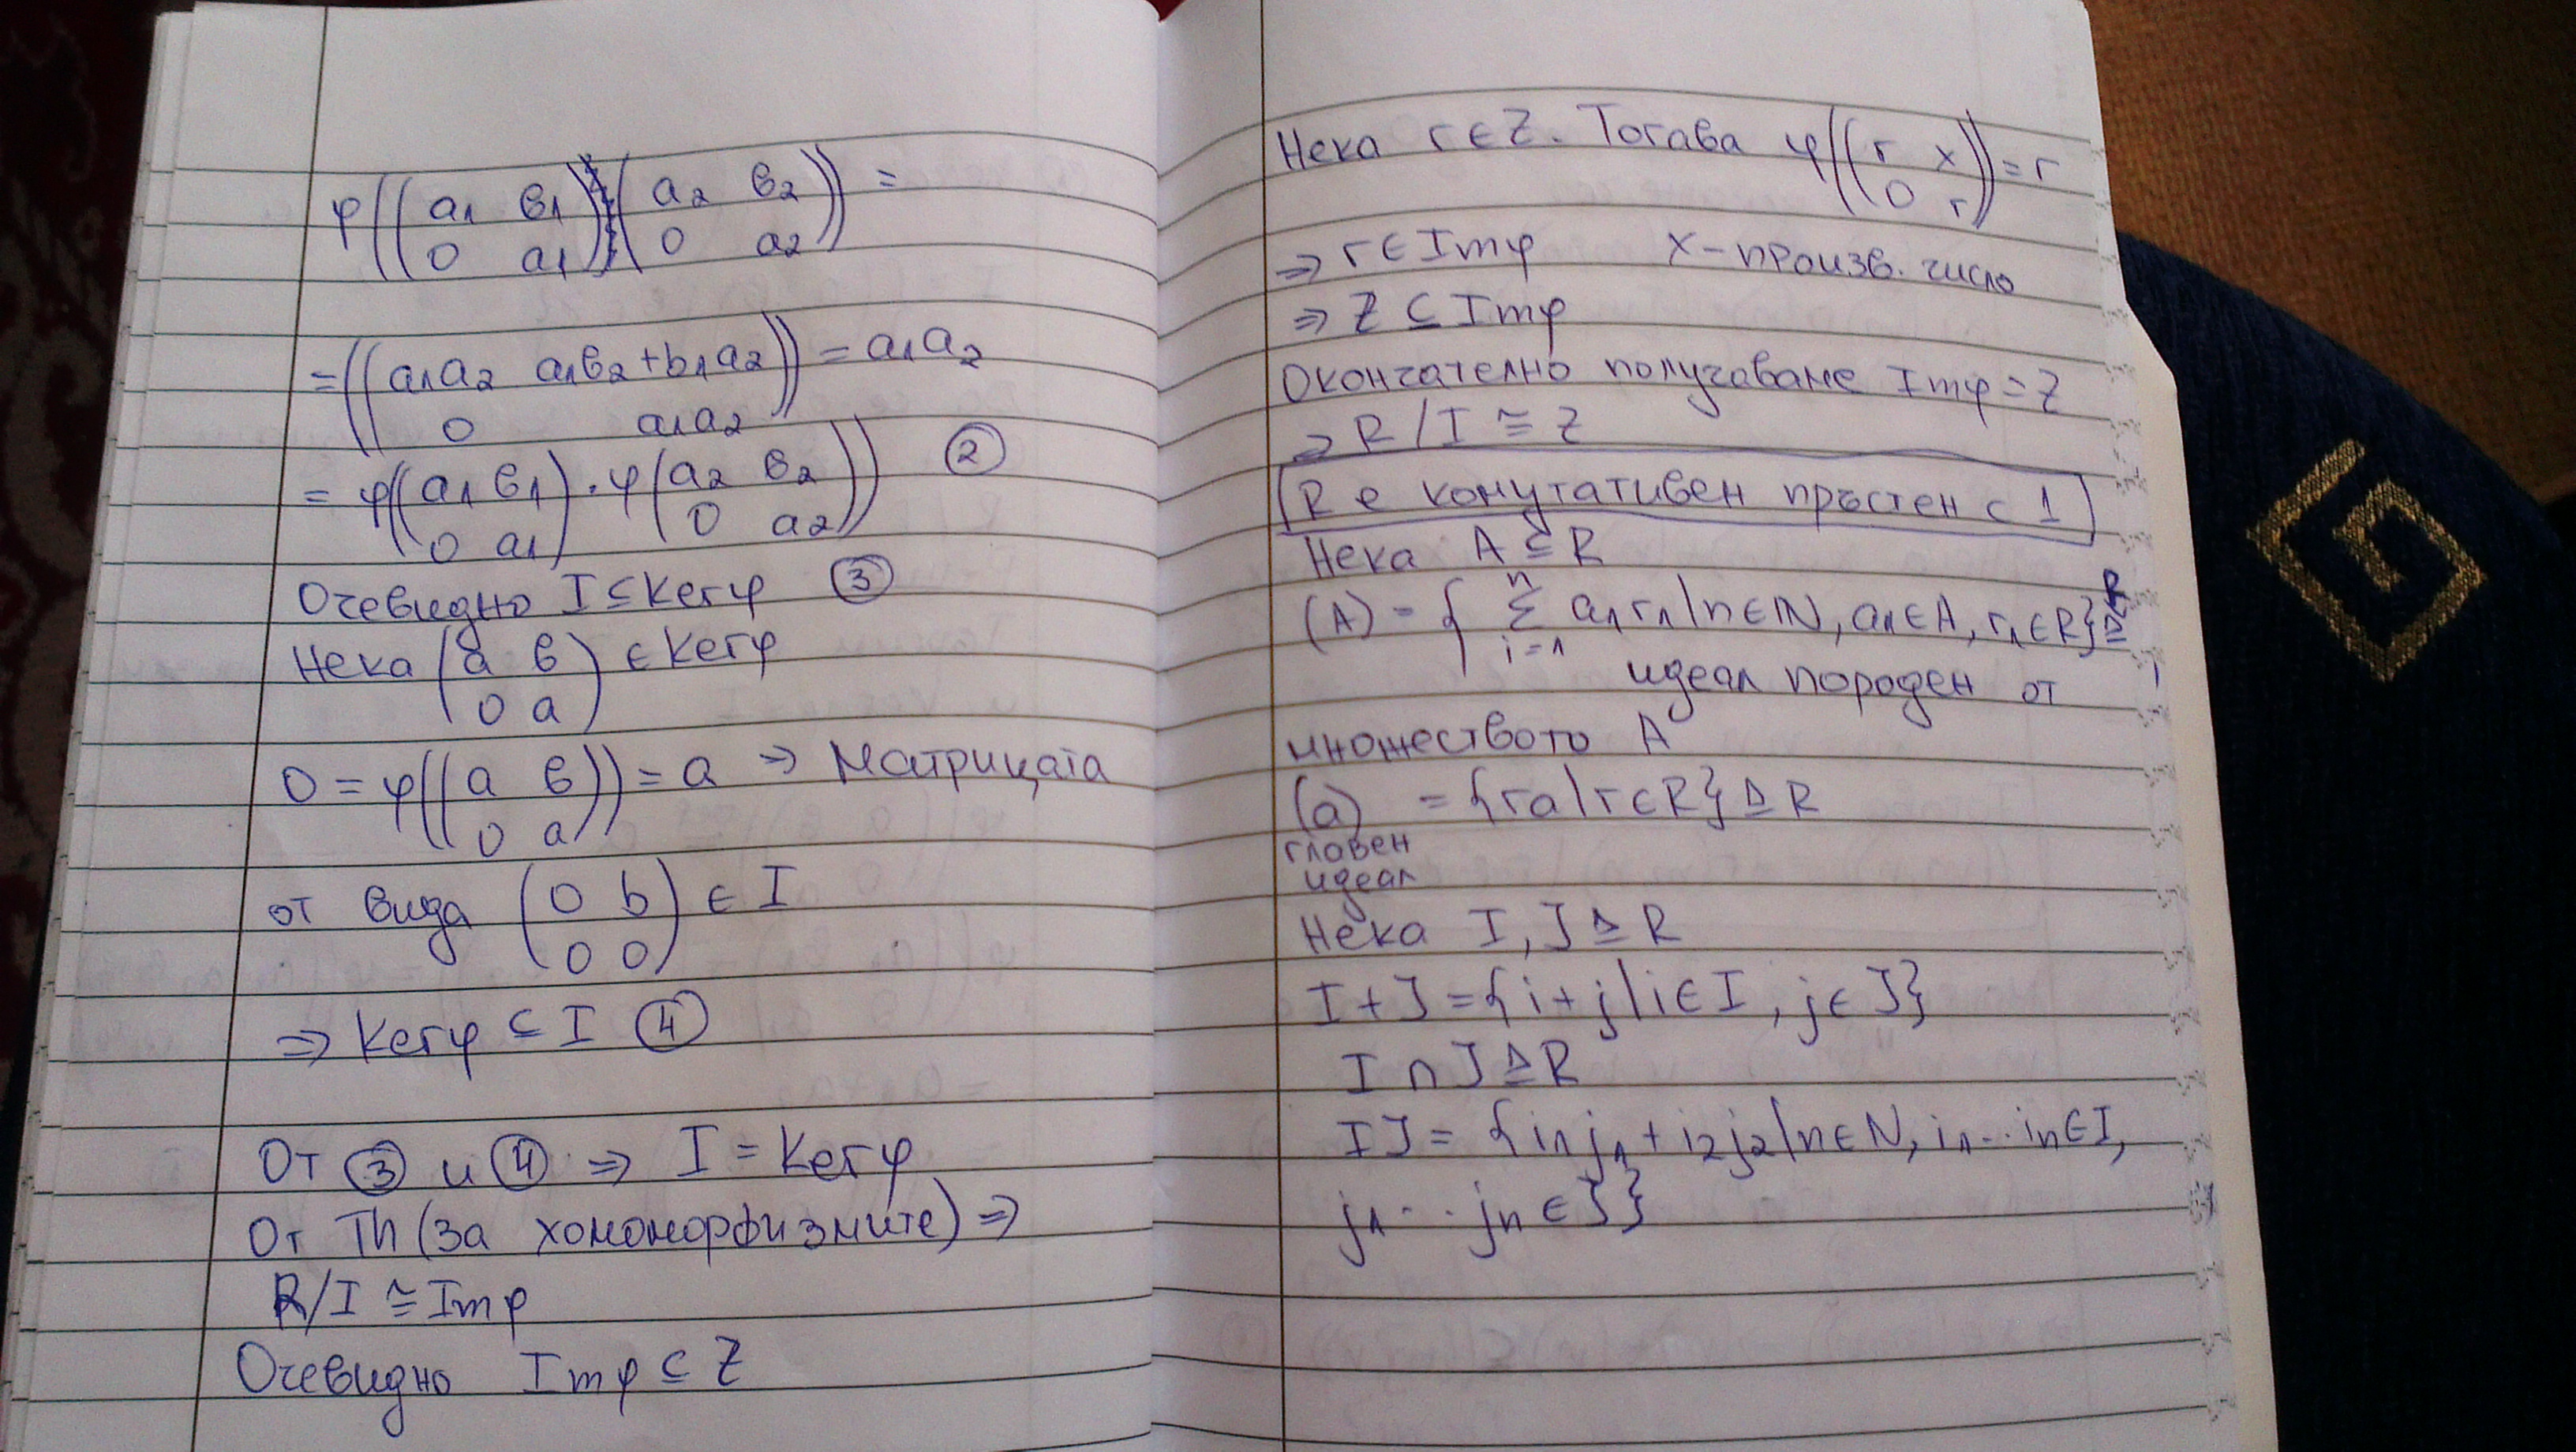 φ((a₁ в₁ / 0 a₁)(a₂ в₂ / 0 a₂)) =
= ((a₁a₂ a₁в₂+b₁a₂ / 0 a₁a₂)) = a₁a₂
= φ((a₁ в₁ / 0 a₁)·φ(a₂ в₂ / 0 a₂)) ②
Очевидно I ⊆ Kerφ ③
Нека (a в / 0 a) ∈ Kerφ
0 = φ((a в / 0 a)) = a ⇒ Матрицата
от вида (0 b / 0 0) ∈ I
⇒ Kerφ ⊆ I ④
От ③ и ④ ⇒ I = Kerφ
От Th (за хомоморфизмите) ⇒
R/I ≅ Imφ
Очевидно Imφ ⊆ Z
Нека r ∈ Z. Тогава φ((r x / 0 r)) = r
⇒ r ∈ Imφ x – произв. число
⇒ Z ⊆ Imφ
Окончателно получаваме Imφ = Z
⇒ R/I ≅ Z
R е комутативен пръстен с 1
Нека A ⊆ R
(A) = { n Σ i=1 a₁r₁ | n ∈ N, a₁ ∈ A, r₁ ∈ R} ⊴ R
идеал породен от
множеството A
(a) = {ra | r ∈ R} ⊴ R
главен
идеал
Нека I, J ⊴ R
I + J = {i + j | i ∈ I, j ∈ J}
I ∩ J ⊴ R
IJ = {i₁j₁ + i₂j₂ | n ∈ N, i₁...in ∈ I,
j₁...jn ∈ J}